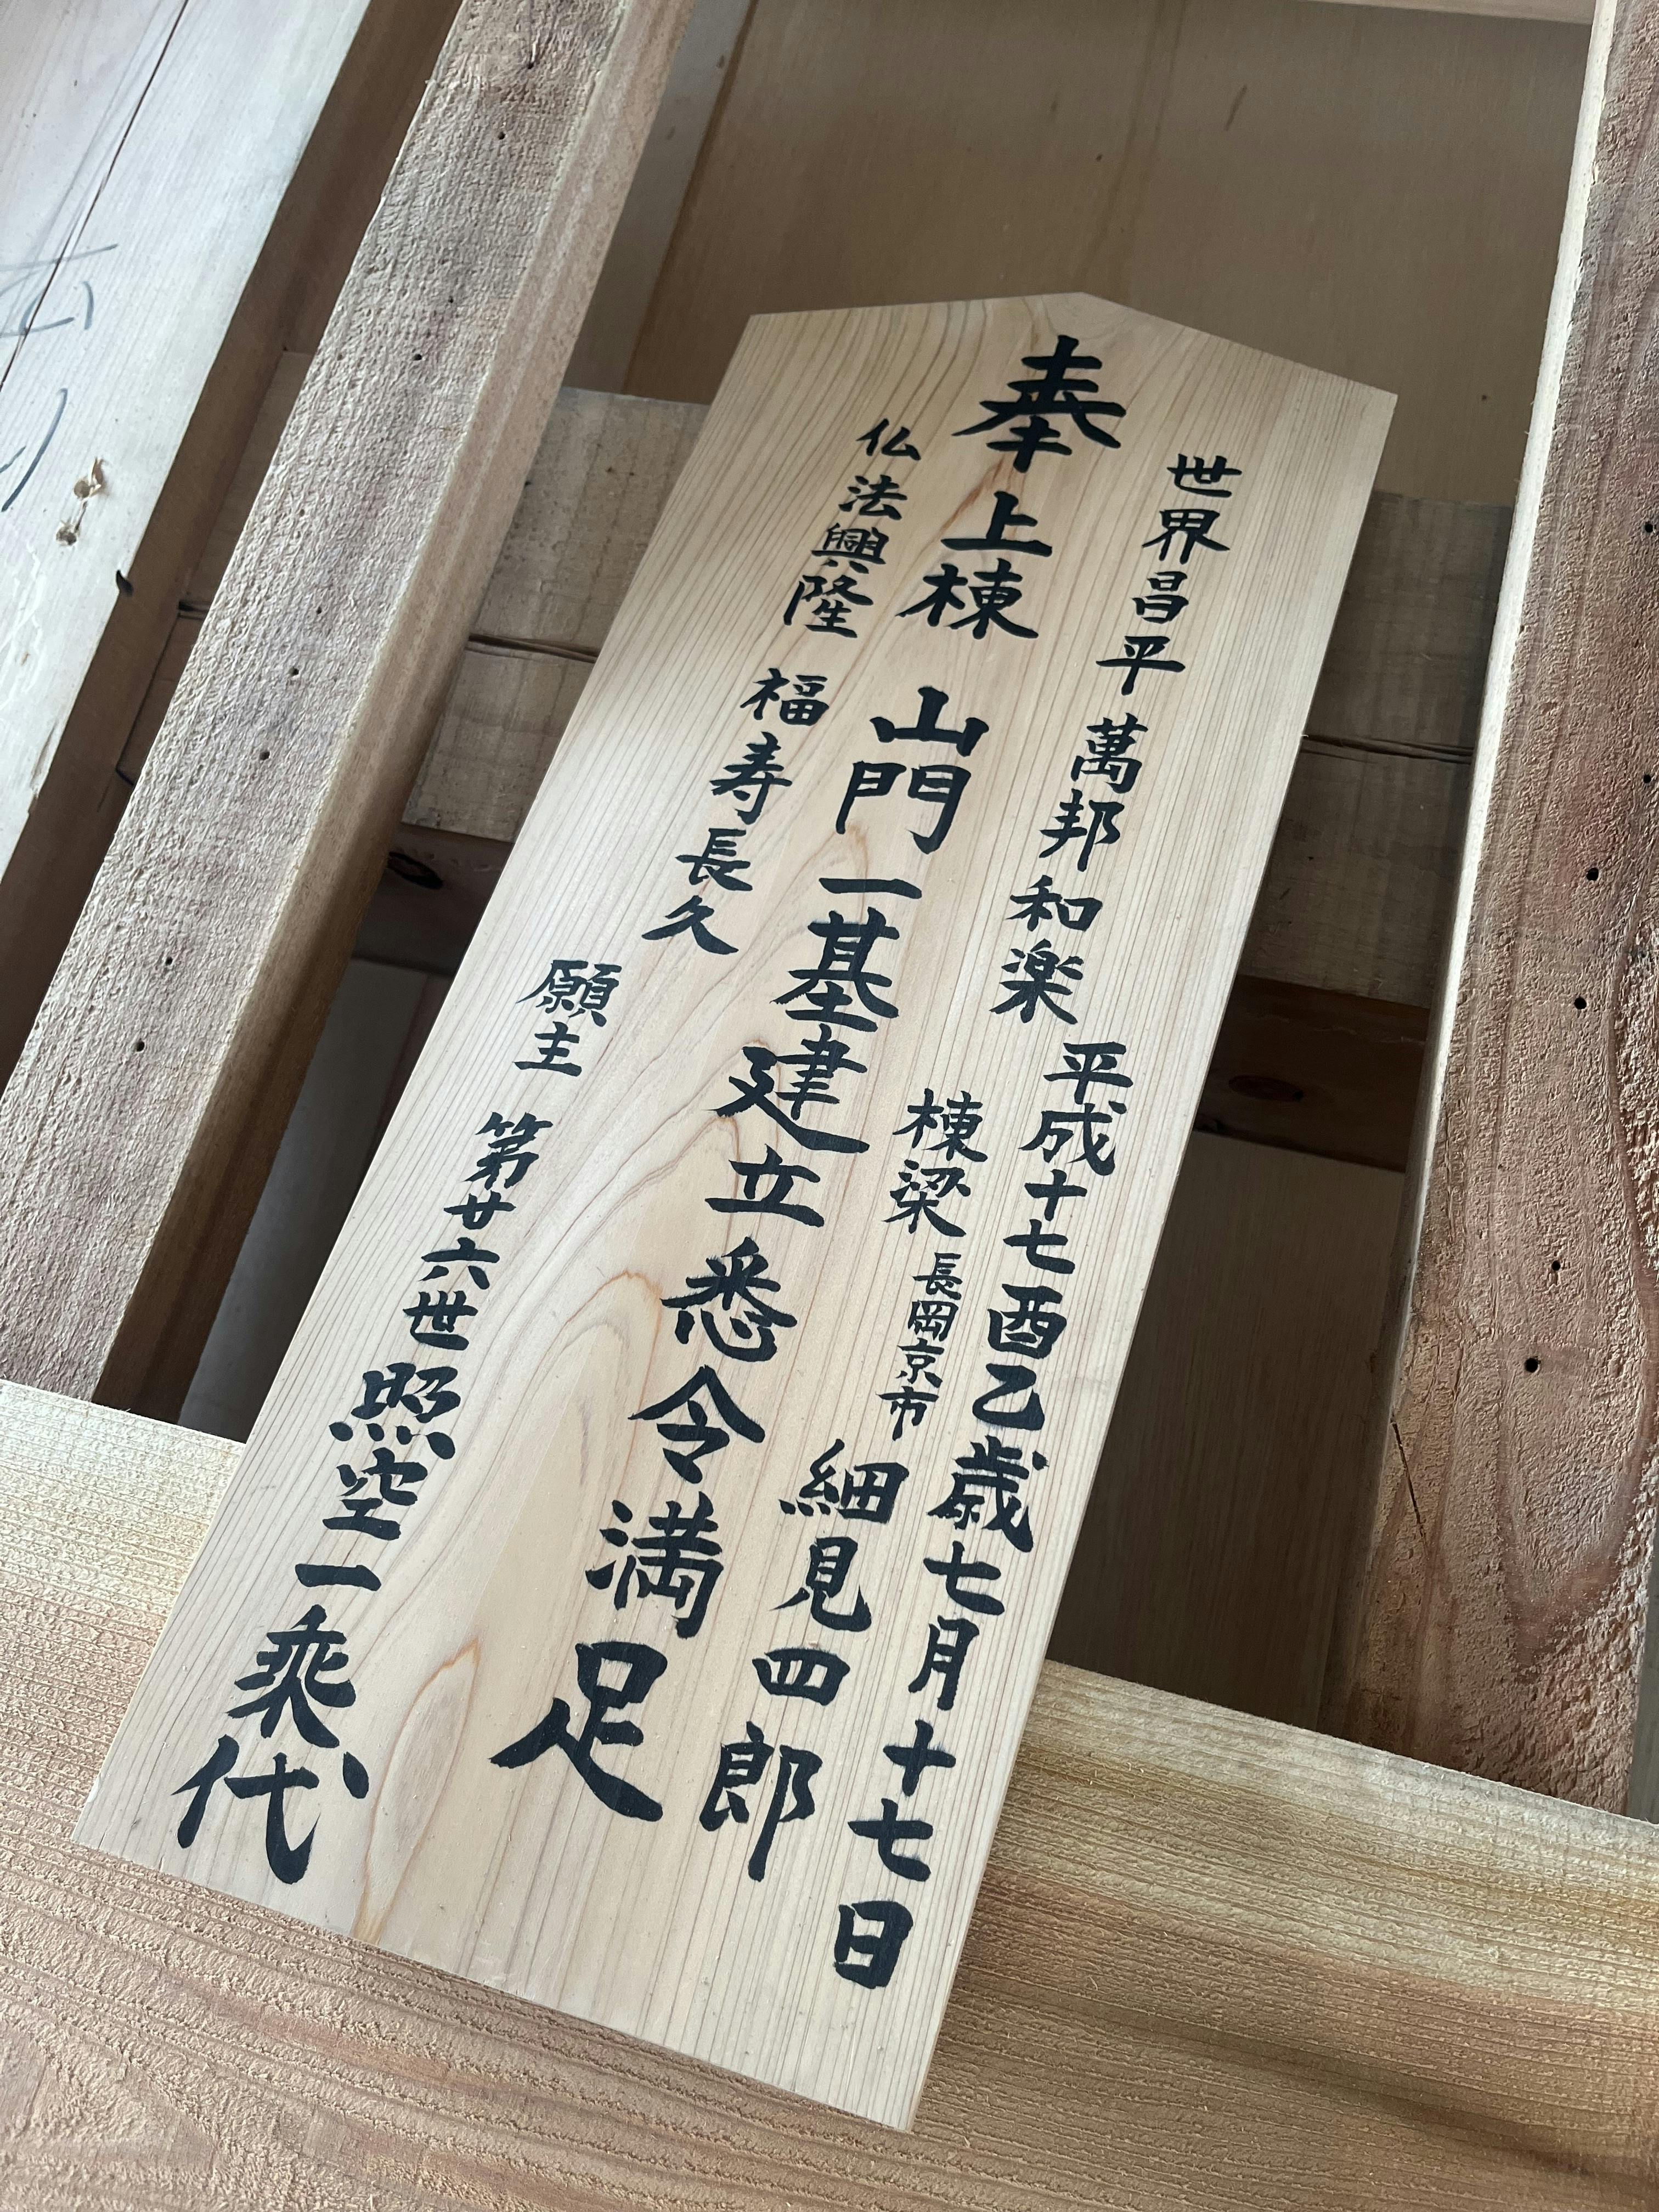 世界昌平 萬邦和楽 平成十七酉乙歳七月十七日
棟梁 長岡京市 細見四郎
奉上棟 山門一基建立悉令満足
仏法興隆 福寿長久
願主 第廿六世照空一乘代